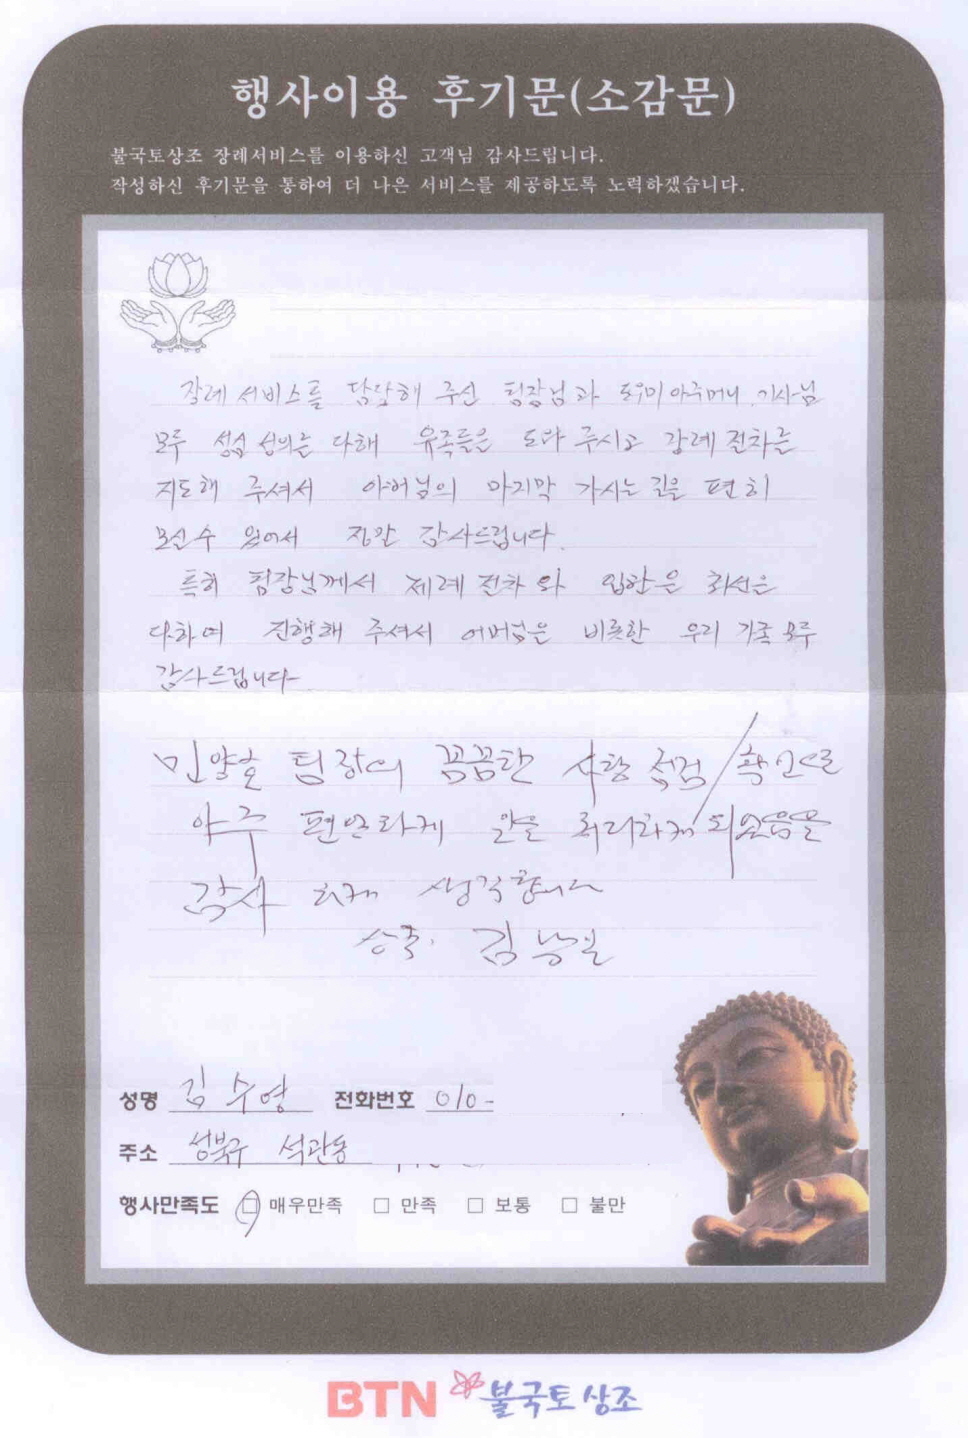 행사이용 후기문(소감문)
불국토상조 장례서비스를 이용하신 고객님 감사드립니다.
작성하신 후기문을 통하여 더 나은 서비스를 제공하도록 노력하겠습니다.
장례 서비스를 담당해 주신 팀장님과 도우미 아주머니, 기사님
모두 성심 성의를 다해 유족들을 도와 주시고 장례 절차를
지도해 주셔서 아버님의 마지막 가시는 길을 편히
모실수 있어서 정말 감사드립니다.
특히 팀장님께서 제례 절차와 입관을 최선을
다하여 진행해 주셔서 어머님을 비롯한 우리 가족 모두
감사드립니다
팀장의 꼼꼼한 사항 점검/확인으로
아주 편안하게 일을 처리하게 되었음을
감사하게 생각합니다
상주. 김
성명 김수영 전화번호 010-
주소 성북구 석관동
행사만족도 □ 매우만족 □ 만족 □ 보통 □ 불만
BTN 불국토상조